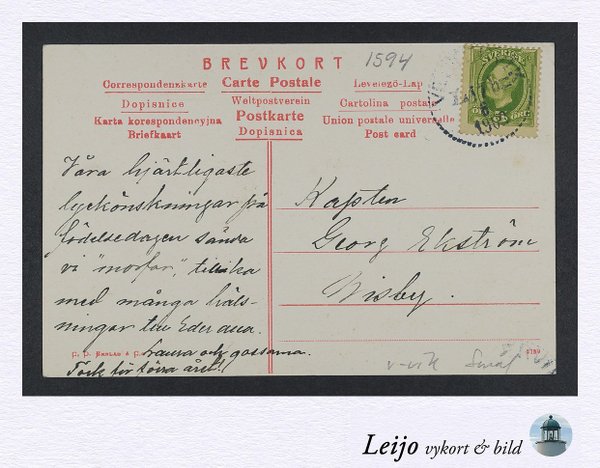 BREVKORT
1594
Correspondenzkarte Carte Postale Levelező-Lap
Dopisnice Weltpostverein Cartolina postale
Karta korespondencyjna Postkarte Union postale universelle
Briefkaart Dopisnica Post card
SVERIGE
ÖRE
Våra hjärtligaste
lyckönskningar på
födelsedagen sända
vi "morfar", tillika
med många häls-
ningar till Eder alla.
Laura och gossarna.
Tack för förra året!!
Kapten
Georg Ekström
Visby.
v-vik Små
Leijo vykort & bild